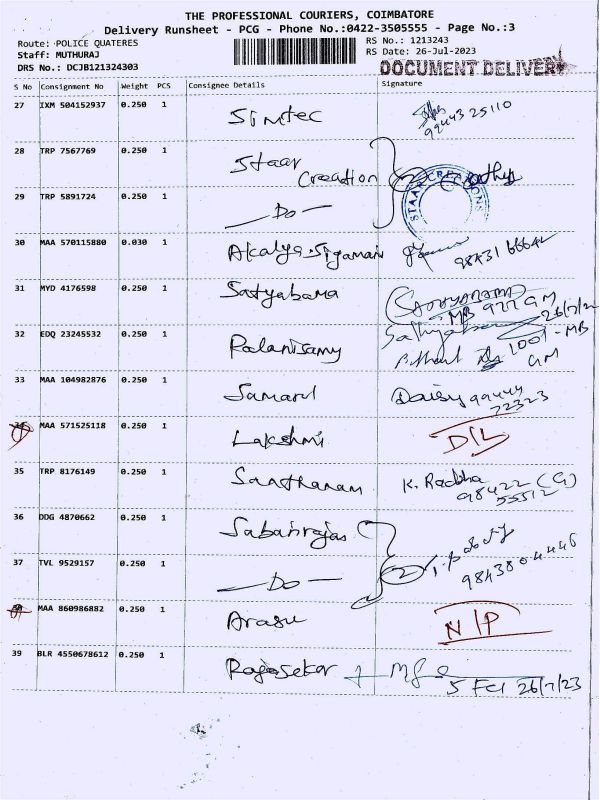 THE PROFESSIONAL COURIERS, COIMBATORE
Delivery Runsheet - PCG - Phone No.:0422-3505555 - Page No.:3
Route: POLICE QUATERES
RS No.: 1213243
Staff: MUTHURAJ
RS Date: 26-Jul-2023
DRS No.: DCJB121324303
DOCUMENT DELIVERY
S No Consignment No Weight PCS Consignee Details Signature
27 IXM 504152937 0.250 1 Simtec
9944325110
28 TRP 7567769 0.250 1 Staar Creation
STAAR CREATIONS
29 TRP 5891724 0.250 1 — Do —
30 MAA 570115880 0.030 1 Akalya Sigamani
31 MYD 4176598 0.250 1 Satyabama
MB 977 GM
32 EDQ 23245532 0.250 1 Palanisamy
1001 - MB
GM
33 MAA 104982876 0.250 1 Samarul Daisy 99444
72323
34 MAA 571525118 0.250 1 Lakshmi D/L
35 TRP 8176149 0.250 1 Santhanam K. Radha
98422 (G)
55512
36 DDG 4870662 0.250 1 Sabanrajas
37 TVL 9529157 0.250 1 — Do — 2
9843804446
38 MAA 860986882 0.250 1 Arasu N/P
39 BLR 4550678612 0.250 1 Rajasekar
26/7/23